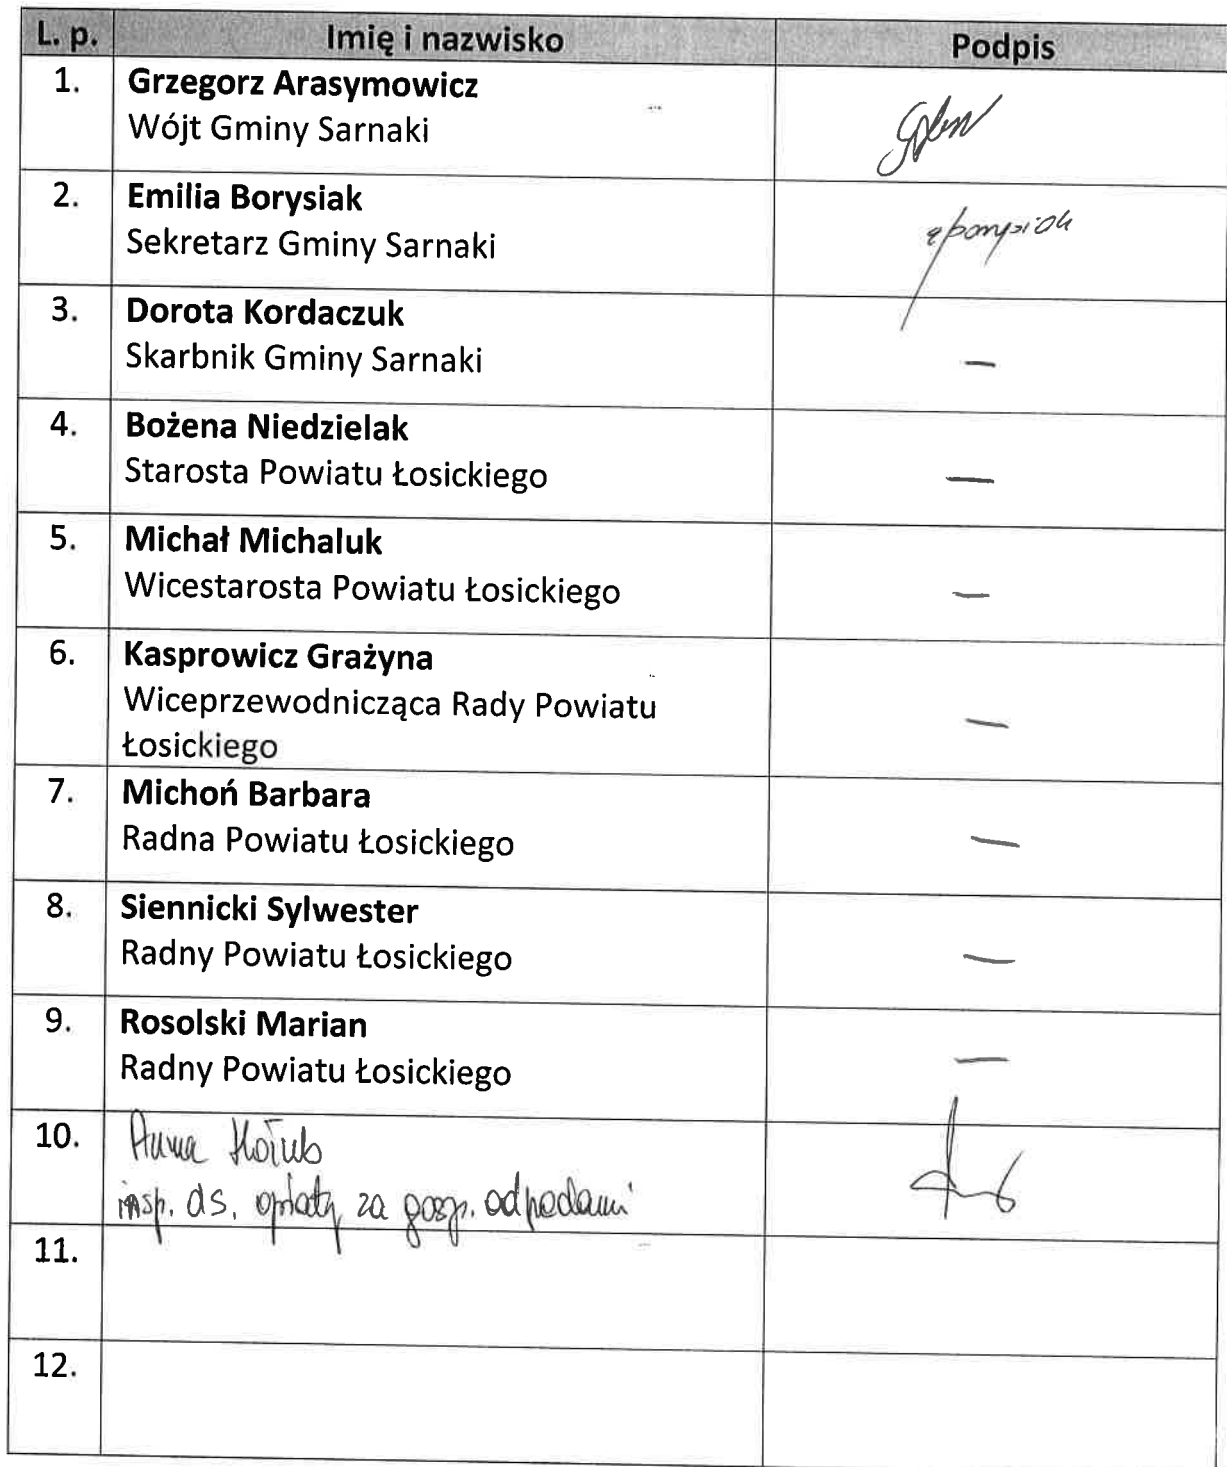 L. p. Imię i nazwisko Podpis
1. Grzegorz Arasymowicz
Wójt Gminy Sarnaki
2. Emilia Borysiak
Sekretarz Gminy Sarnaki
3. Dorota Kordaczuk
Skarbnik Gminy Sarnaki —
4. Bożena Niedzielak
Starosta Powiatu Łosickiego —
5. Michał Michaluk
Wicestarosta Powiatu Łosickiego —
6. Kasprowicz Grażyna
Wiceprzewodnicząca Rady Powiatu —
Łosickiego
7. Michoń Barbara
Radna Powiatu Łosickiego —
8. Siennicki Sylwester
Radny Powiatu Łosickiego —
9. Rosolski Marian
Radny Powiatu Łosickiego —
10. Anna Hołub
insp. ds. opłaty za gosp. odpadami
11.
12.